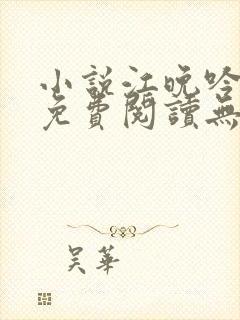 小說江晚吟
免費閱讀無
吳華